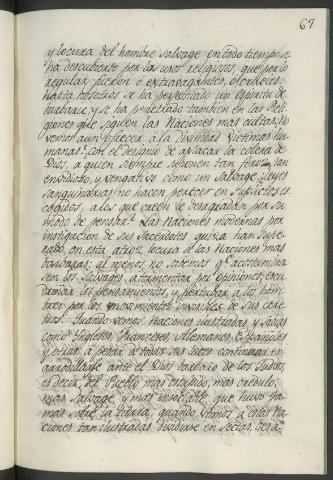 67
y locura del hombre salvage en todo tiempo se
ha descubierto por los usos religiosos, que por lo
regular fueron o extravagantes, o crueles.
hasta nosotros se ha perpetuado un Espiritu de
barbarie, y se ha penetrado tambien en las Reli-
giones que siguen las Naciones mas cultas: No
vemos aun ofrecer à la Divinidad Victimas hu-
manas? con el designio de aplacar la colera de
Dios, a quien siempre suponen tan feroz, tan
envidioso, y vengativo como un Salvage; leyes
sanguinarias no hacen perecer en Suplicios es-
cogidos, a los que creen le desagradan por su
modo de pensar? Las Naciones modernas por
instigacion de sus Sacerdotes quiza han supe-
rado en esta atroz locura a las Naciones mas
barbaras: al menos no sabemos q.e acostumbra-
sen los Salvages a atormentar por opiniones, escu-
driñar los pensamientos, y perturbar a los hom-
bres por los movimientos invisibles de sus cere-
bros. Quando vemos Naciones ilustradas y Sabias
como Ingleses, Franceses, Alemanes, Españoles
y otras a pesar de todas sus luces continuar in-
cando rodillas ante el Dios barbaro de los Judios,
es decir, del Pueblo mas estupido, mas credulo,
mas Salvage, y mas insociable que huvo ja-
mas sobre la tierra; quando vemos a estas Na-
ciones tan ilustradas dividirse en Sectas,